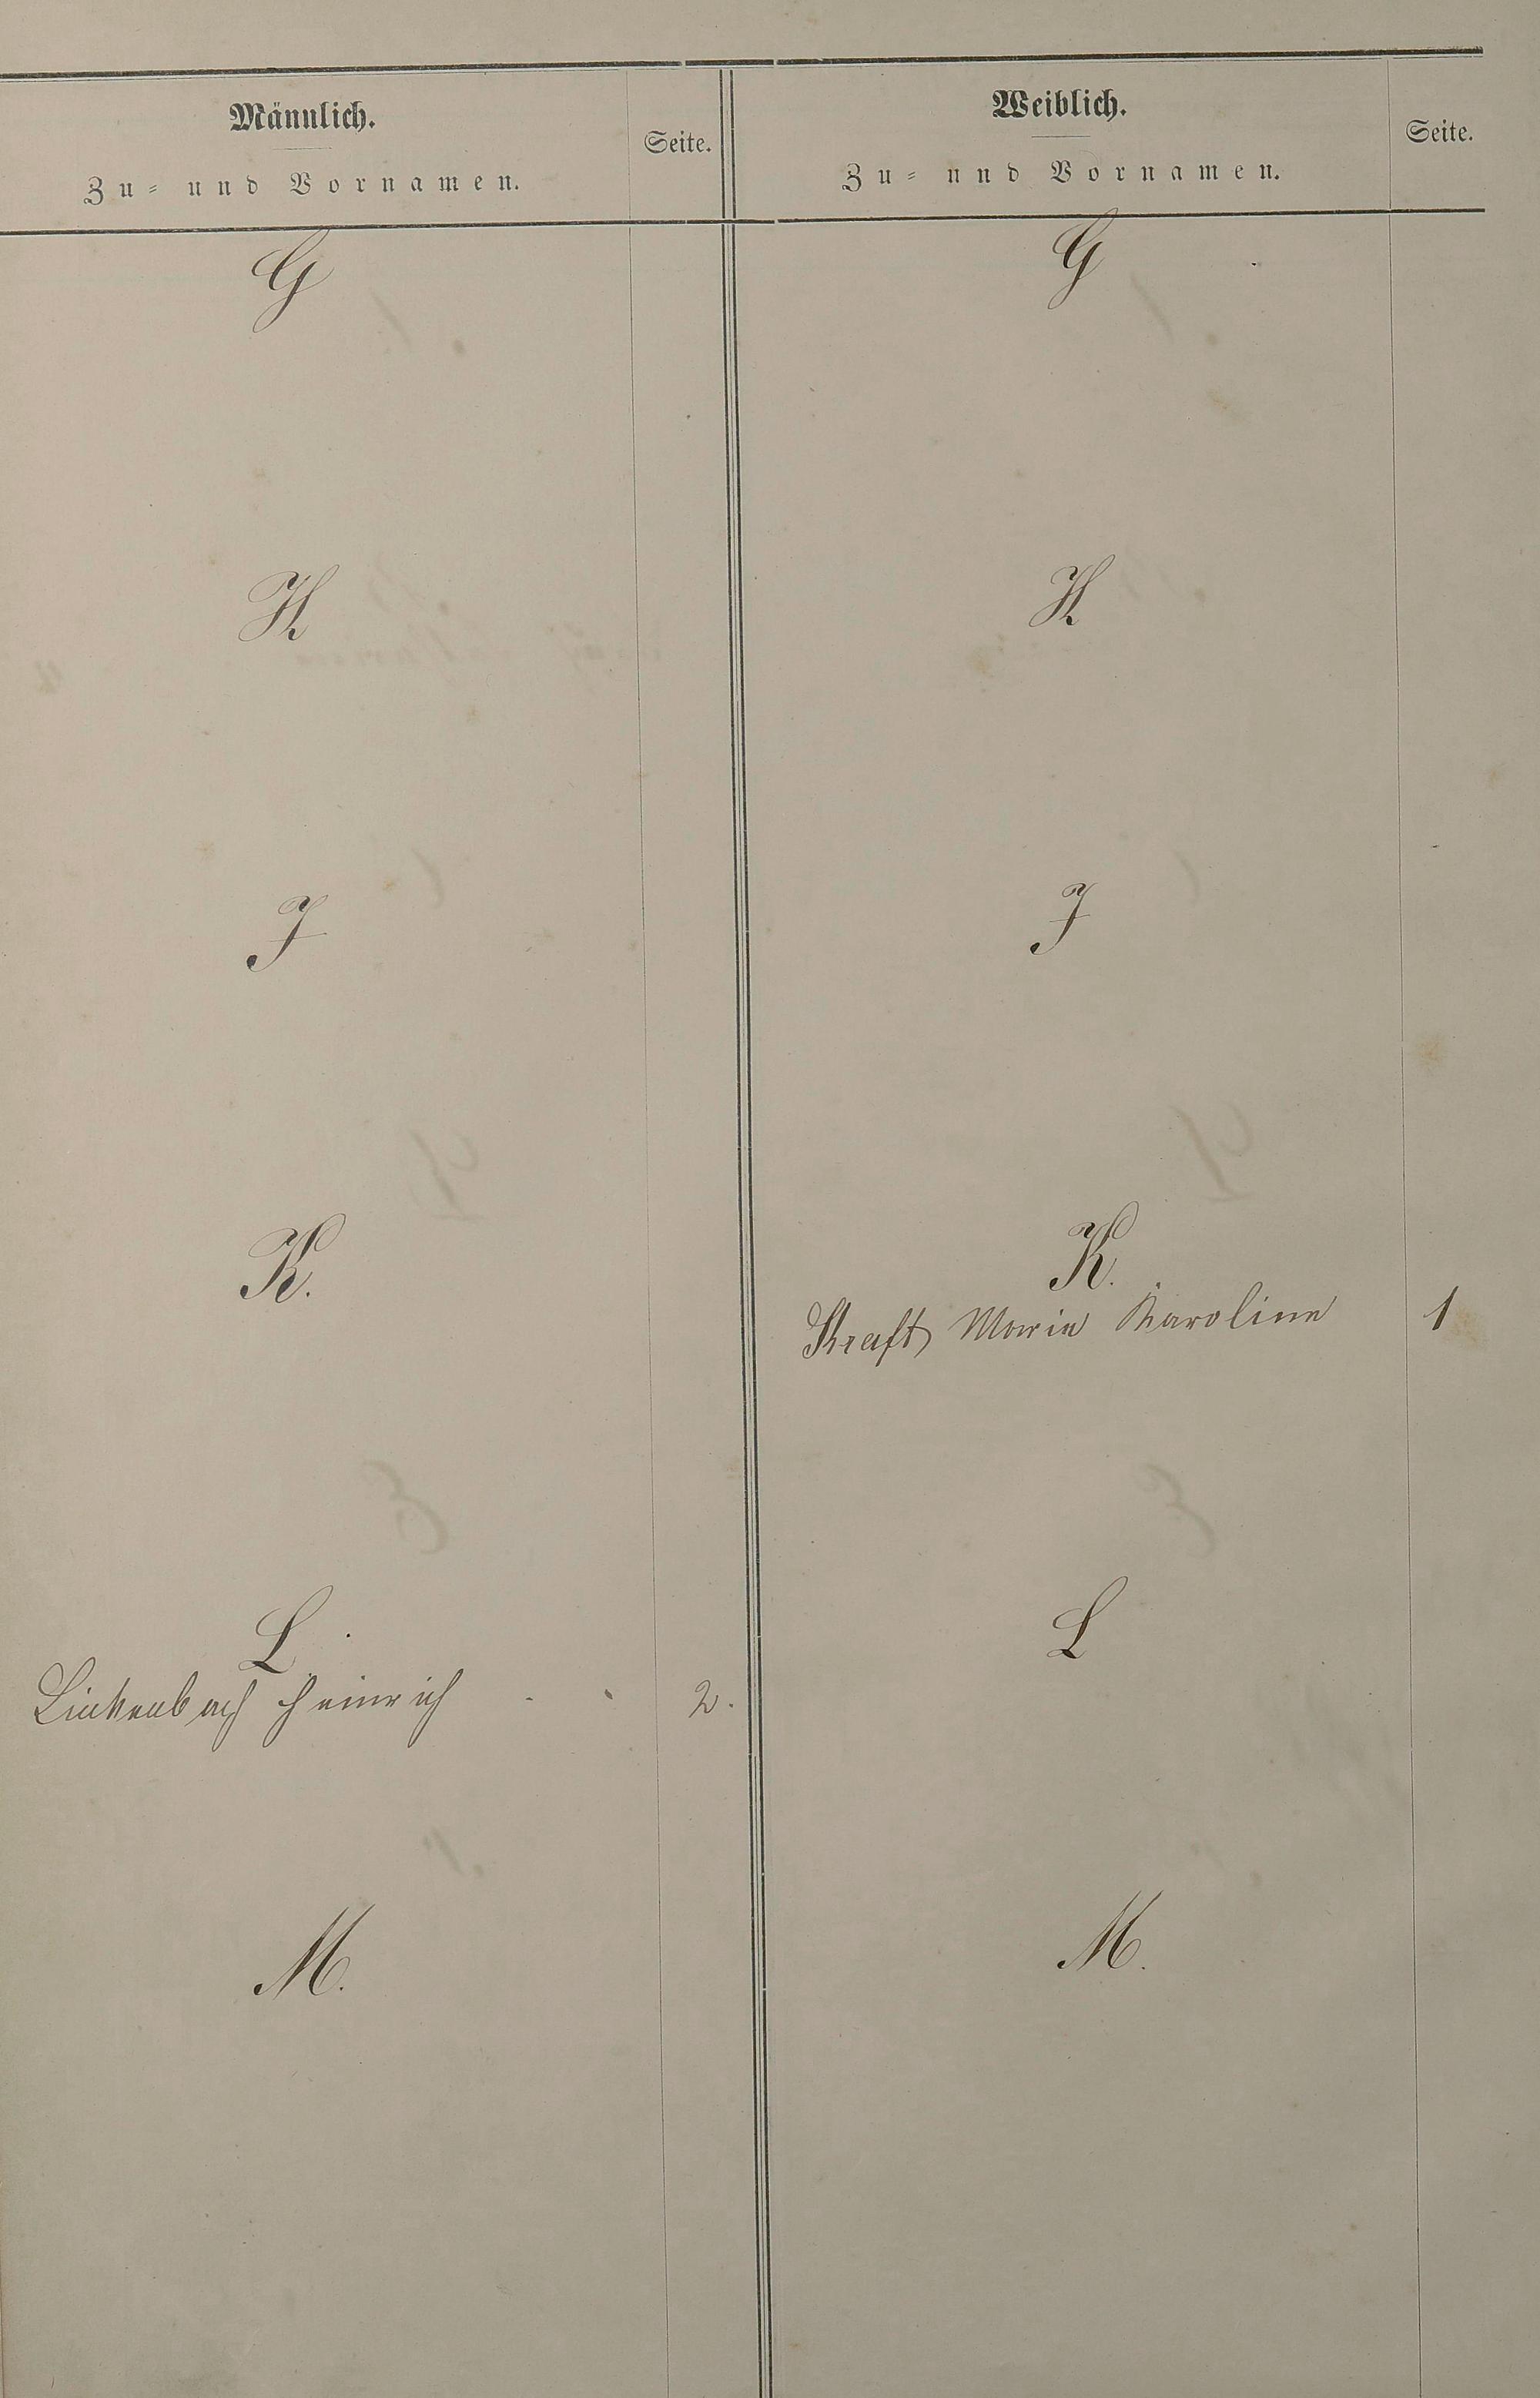 Männlich.
Zu- und Vornamen.
Seite.
G
H
J
K.
L
Linkenbach Heinrich 2.
M.
Weiblich.
Zu- und Vornamen.
Seite.
G
H
J
K.
Kraft Marie Karoline 1
L
M.